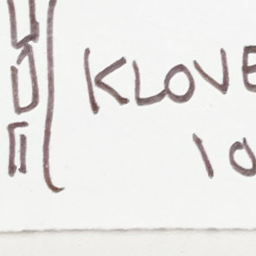 KLOVE
10